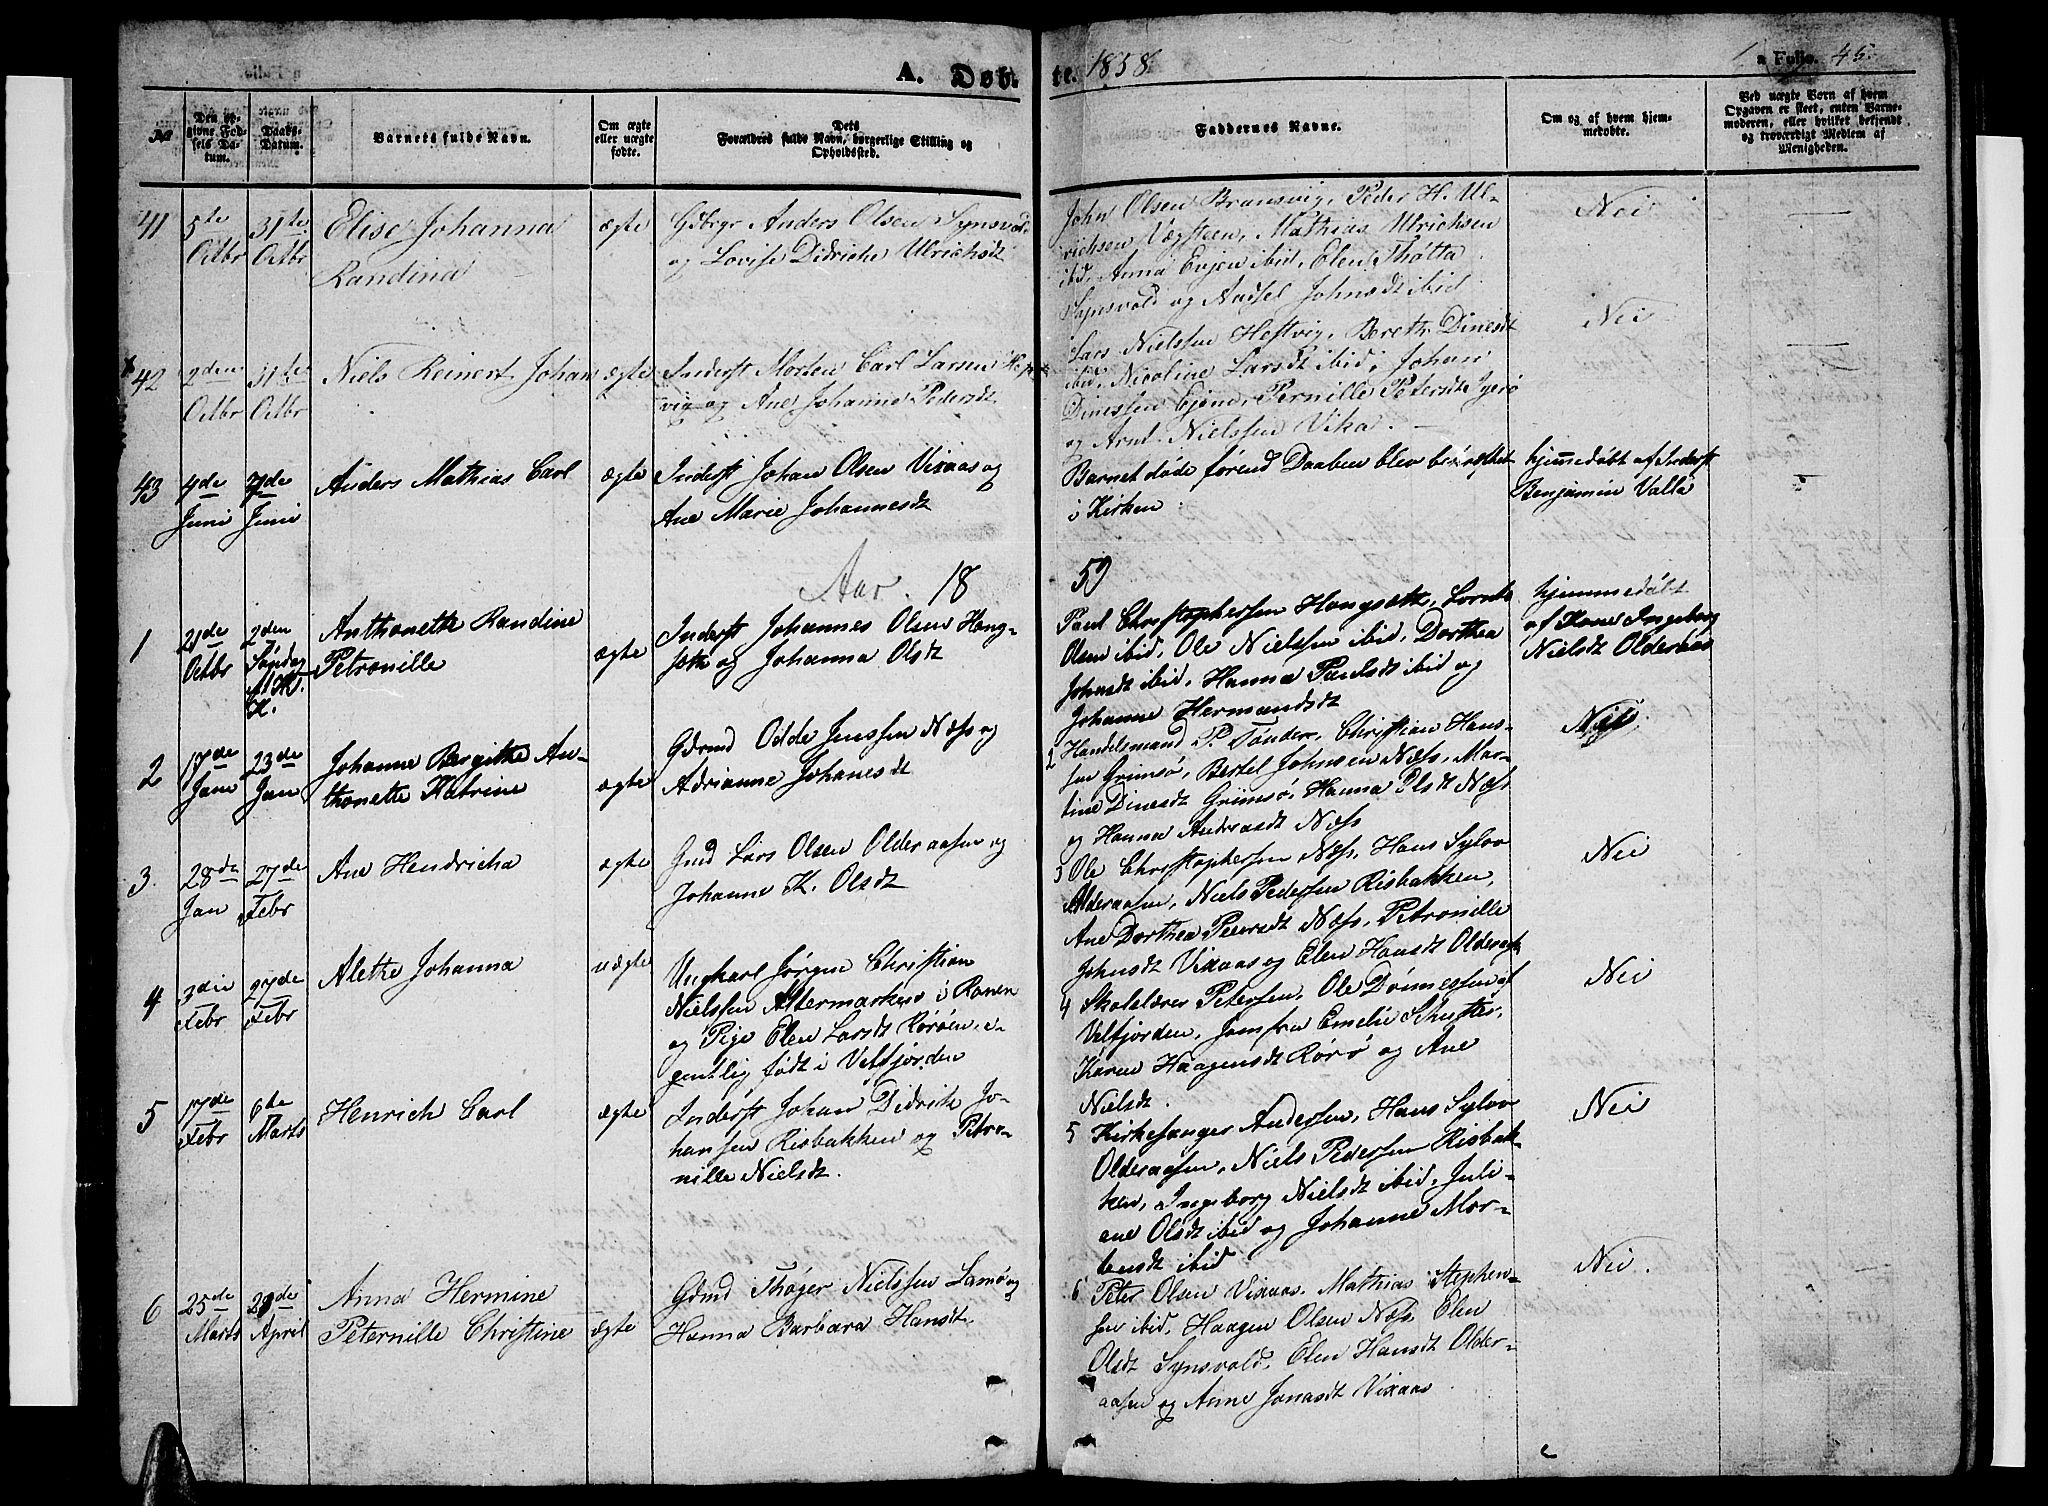 A. Døb-
te. 1858.
a Folio. 45.
No
Den op-
givne Fød-
sels Da-
tum.
Daabs-
Datum.
Barnets fulde Navn.
Om ægte
eller uægte
fødte.
Dets
Forældres fulde Navn, borgerlige Stilling og
Opholdssted.
Faddernes Navne.
Om og af hvem hjem-
medøbte.
Ved uægte Børn af hvem
Opgaven er skeet, enten Barne-
moderen, eller hvilket bekjendt
og troværdigt Medlem af
Menigheden.
41
5te
Octbr
31te
Octbr
Elise Johanna
Randina
ægte
Gbrgr Anders Olsen Synsvold
og Lovise Didriche Ulrichsdt
John Olsen Brunsvig, Peder H. Ul-
richsen Vægsteen, Mathias Ulrichsen
ibid, Anna Evjen ibid, Elen Thotta
Synsvold og Johnsdt ibid
Nei
42
2den
Octbr
31te
Octbr
Niels Reinert Johan
ægte
Inderst Morten Carl Larsen
vig og Ane Johanna Pedersdt
Lars Nielsen Hestvig, Bereth Dinesdt
ibid, Nicoline Larsdt ibid, Johan
Dinessen Pernille Petersdt
og Arnt Nielssen Vika.
Nei
43
4de
Juni
7de
Juni
Anders Mathias Carl
ægte
Inderst Johan Olsen Vixaas og
Ane Marie Johannesdt
Barnet døde førend Daaben blev bekræftet
i Kirken
hjemmedøbt af Inderst
Benjamin Valla
Aar. 18
59
1
21de
Octbr
2den
Søndag
H.
Anthonette Randine
Petronille
ægte
Inderst Johannes Olsen Hong-
seth og Johanna Olsdt
Paul Christophersen Hongseth, Lorntz
Olsen ibid, Ole Nielssen ibid, Dorthea
Johnsdt ibid, Hanna Paulsdt ibid og
Johanne Hermandsdt
hjemmedøbt
af Kone Ingeborg
Nielsdt Olderaas
2
17de
Jan
23de
Jan
Johanne Bergitha An-
thonette Katrine
ægte
Gdmd Odde Jenssen Næss og
Adrianna Johanesdt
2 Handelsmand P. Tønder, Christian Han-
sen Grimsø, Bertel Johnsen Næss, Mar-
tine Dinesdt Grimsø, Hanna Olsdt Næss
og Hanna Andreasdt Næss
Nei
3
28de
Jan
27de
Febr
Ane Hendricha
ægte
Gmd Lars Olsen Olderaasen og
Johanne K. Olsdt
3 Ole Christophersen Næss, Hans Sylov
Olderaasen, Niels Pedersen Risbakken,
Ane Dorthea Peersdt Næss, Petronille
Johnsdt Vixaas og Elen Hansdt Olderaas
Nei
4
3die
Febr
27de
Febr
Alethe Johanna
uægte
Ungkarl Jørgen Christian
Nielssen Altermarken i Ranen
og Pige Elen Larsdt Rørøen, e-
gentlig født i Velfjorden
4 Skolelærer Petersen, Ole Dønnessen af
Velfjorden, Jomfru Emelie Schutter,
Karen Haagensdt Rørø og Ane
Nielsdt.
Nei
5
17de
Febr
6te
Marts
Henrich Carl
ægte
Inderst Johan Didrik Jo-
hansen Risbakken og Petro-
nille Nielsdt.
5 Kirkesanger Andersen, Hans Sylov
Olderaasen, Niels Pedersen Risbak-
ken, Ingeborg Nielsdt ibid, Juli-
ane Olsdt ibid og Johanne Mor-
tensdt ibid
Nei
6
25de
Marts
29de
April
Anna Hermine
Peternille Christine
ægte
Gdmd Thøger Nielssen Lamø og
Hanna Barbara Hansdt
6 Peter Olsen Vixaas, Mathias Stephen-
sen ibid, Haagen Olsen Næss, Elen
Olsdt Synsvold, Elen Hansdt Older-
aasen og Anne Jonasdt Vixaas
Nei.